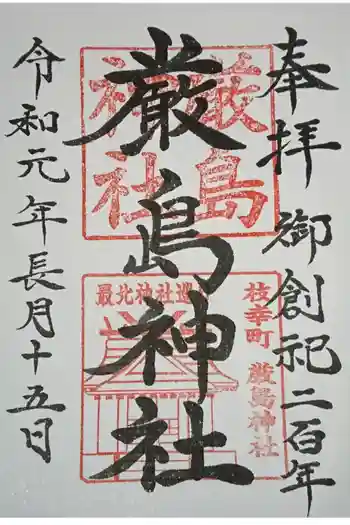 奉拝 御創祀二百年
厳島神社
令和元年長月十五日
厳島神社
最北神社巡
枝幸町 厳島神社